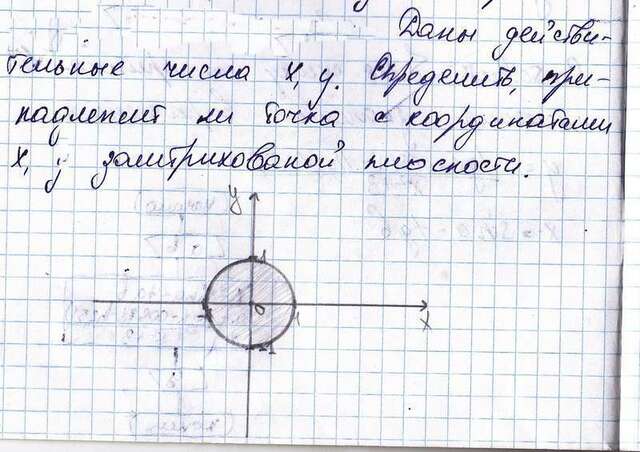 Даны действи-
тельные числа x, y. Определить, при-
надлежит ли точка с координатами
x, y заштрихованой плоскости.
y
1
-1
0
1
x
-1